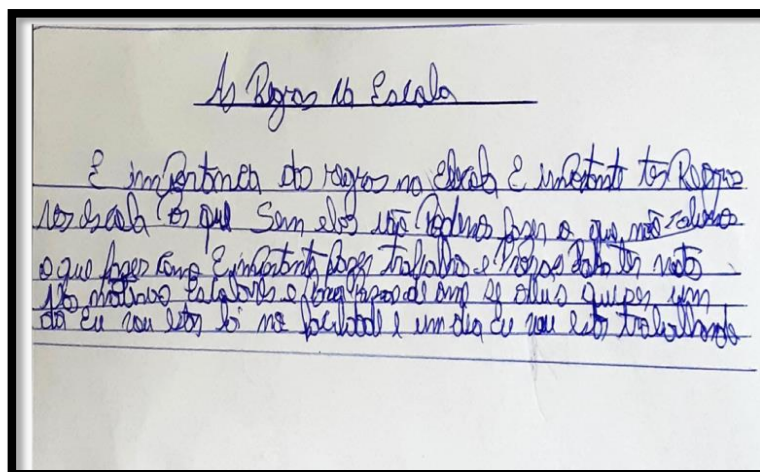 As Regras na Escola
E importancia das regras na escola E importante ter Regras
nas escola Por que Sem elas não Podemos fazer o que não
o que fazer como E importante fazer trabalho e Provas Para ter nota
Escolares e passar de ano se deus quiser um
dia Eu vou estar la na faculdade e um dia Eu vou estar trabalhando